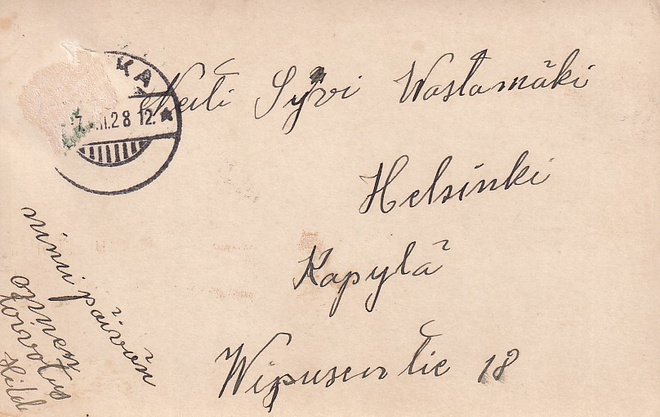 KA
28 12.
Neiti Syvi Wastamäki
Helsinki
Kapylä
Wipusentie 18
nimi päivän
onnen
toivotus
Hild